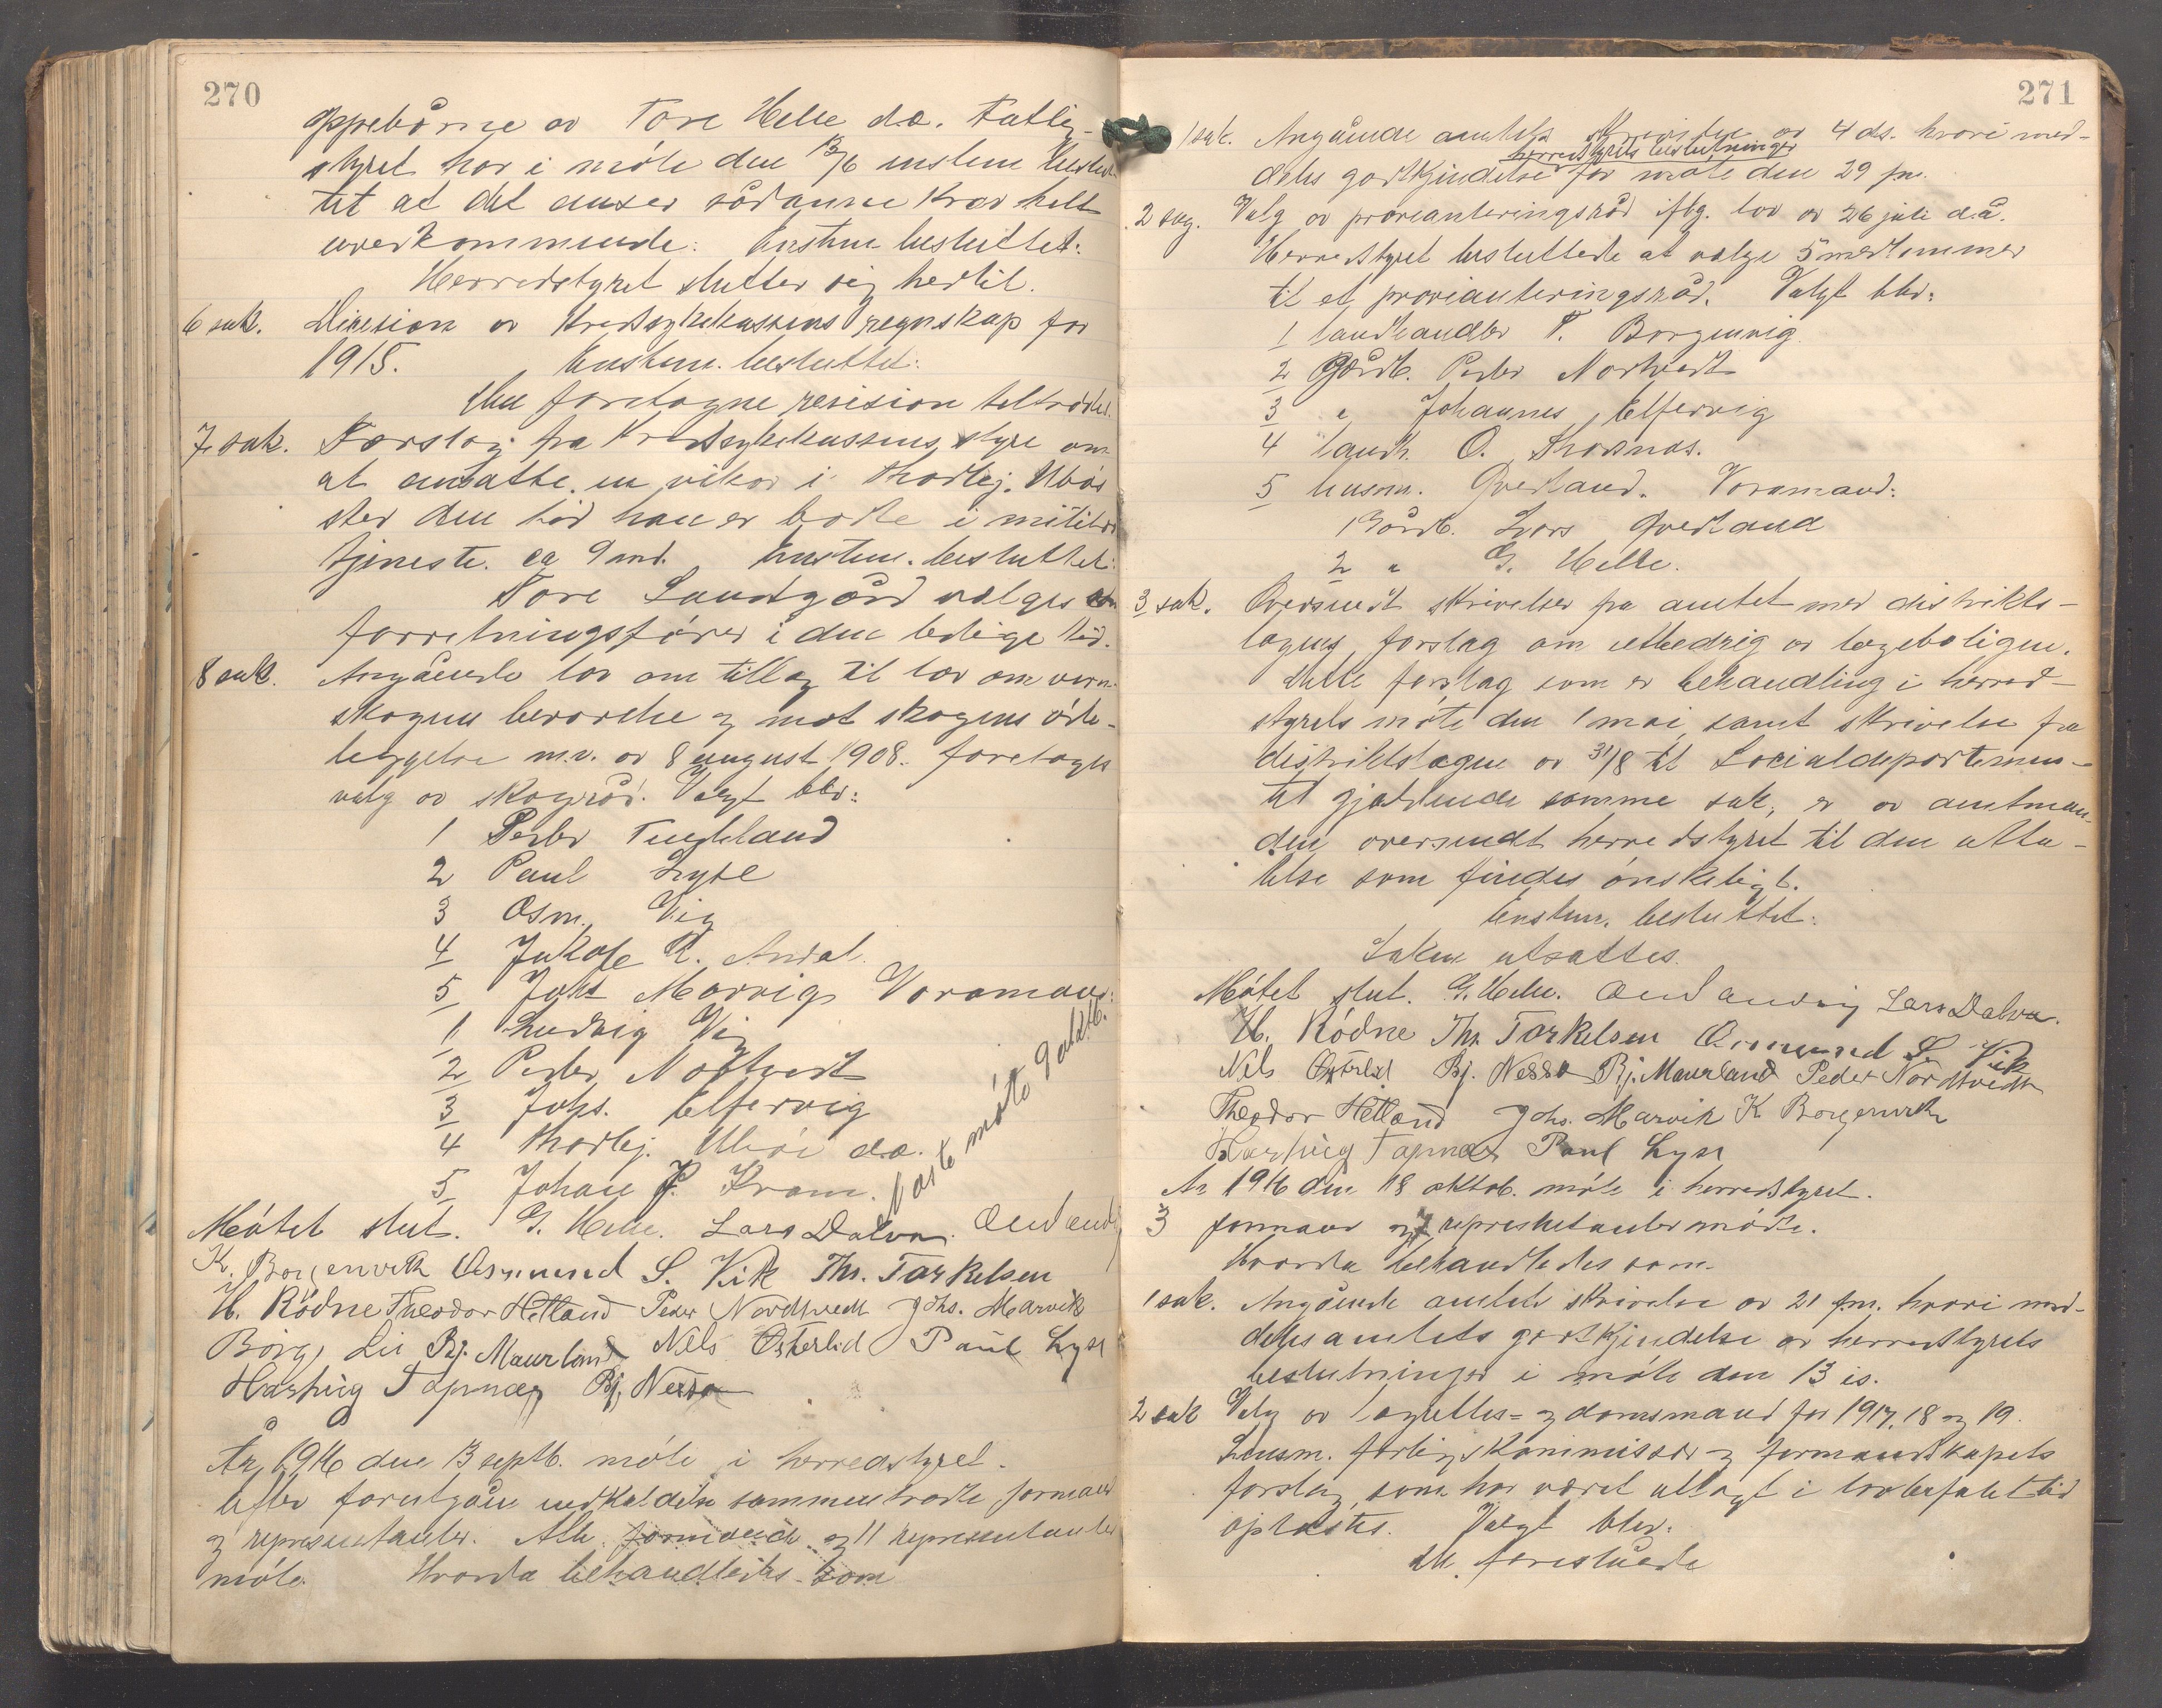 270
oppebårne av Tore Helle d.æ. Fattig-
styret har i møte den 13/6 enstem beslut-
tet at det anser sådanne krav helt
uvedkommende. Enstem besluttet:
Herredstyret slutter sig hertil.
6 sak. Desision av Kredssykekassens regnskap for
1915. Enstem. besluttet:
Den foretagne revision tiltrædes.
7 sak. Forslag fra Kredssykekassens styre om
at ansætte en vikar i Thorlej. Ubøe
sted den tid han er borte i militær
tjeneste. ca 9 mnd. Enstem. besluttet:
Tore Sandgård vælges som
forretningsfører i den ledige tid.
8 sak. Angående lov om tillæg til lov om vern-
skogens bevarelse og mot skogens øde-
læggelse m.v. av 8 august 1908. foretages
valg av skogråd. Valgt blev:
1 Peder Tengeland
2 Paul Lyse
3 Osm. Vig
4 Jakob R. Ardal
5 Johs Marvig Varamænd:
1 Ludvig Vig
2 Peder Nortveit
3 Johs. Elfervig
4 Thorlej. Ubøe d.æ.
5 Johan J. Fram.
første møte 9 oktb.
Møtet slut. G. Helle. Lars Dalva.
K. Borgenvik Osmund S. Vik Th. Torkelsen
H. Rödne Theodor Hetland Peder Nordtvedt Johs. Marvik
Börge Lie Bj. Maurland Nils Österlid Paul Lyse
Hartvig Tapnæs Bj. Nessa
År 1916 den 13 septb. møte i herredstyret.
Efter forutgåen nedkaldelse sammentrådte formænd
og representanter. Alle formænd og 11 representanter
møte. Hvorda behandledes som
271
1 sak. Angående amtets skrivelse av 4 ds. hvori med-
herredstyrets beslutninger
deles godkjendelse for møte den 29 fm.
2 sag. Valg av provianteringsråd iflg. lov av 26 juli d.å.
Herredstyret besluttede at vælge 5 medlemmer
til et provianteringsråd. Valgt blev:
1 landhandler T. Borgenvig
2 Gårdb. Peder Nortvedt
3 " Johannes Elfervig
4 landh. O. Thorsnes.
5 lensm. Qvedland. Varamænd:
1 Gårdb. Lars Qvedland
2 " G. Helle.
3 sak. Oversendt skrivelser fra amtet med distrikts-
lægens forslag om utbedrig av lægeboligen.
Dette forslag som er behandling i herred-
styrets møte den 1 mai samt skrivelse fra
distriktslægen av 31/8 til Socialdepartemen-
tet gjældende samme sak, er av amtman-
den oversendt herredstyret til den utta-
lelse som findes ønskeligt.
Enstem. besluttet:
Saken utsættes.
Møtet slut. G. Helle. Lars Dalva.
H. Rödne Th. Torkelsen Osmund S. Vik
Nils Österlid Bj. Nessa Bj. Maurland Peder Nordtvedt
Theodor Hetland Johs. Marvik K Borgenvik
Hartvig Tapnæs Paul Lyse
År 1916 den 18 oktob. møte i herredstyret.
3 formænd og 7 representanter møtte.
Hvorda behandledes som
1 sak. Angående amtets skrivelse av 21 f.m. hvori med-
deles amtets godkjendelse av herredstyrets
beslutninger i møte den 13 is.
2 sak Valg av lagrettes- og domsmænd for 1917, 18 og 19.
Lensm. forligskommissær og formandskapets
forslag som har været utlagt i lovbefalet tid
oplæstes. Valgt blev:
De foreslåede